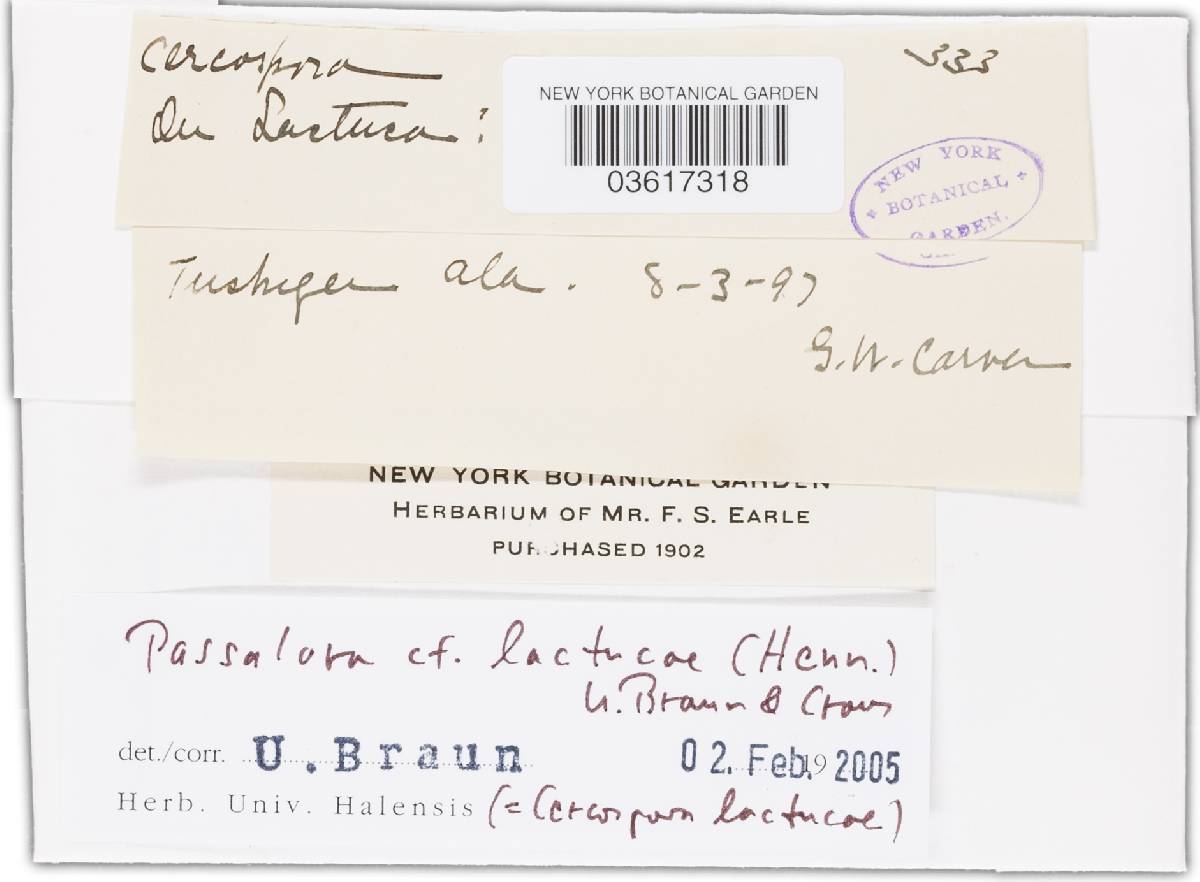 Cercospora
On Lactuca?
333
NEW YORK BOTANICAL GARDEN
03617318
NEW YORK
* BOTANICAL *
GARDEN.
Tuskegee Ala. 8-3-97
G.W. Carver
NEW YORK BOTANICAL GARDEN
HERBARIUM OF MR. F. S. EARLE
PURCHASED 1902
Passalora cf. lactucae (Henn.)
U. Braun & Crous
det./corr. U. Braun 02. Feb. 19 2005
Herb. Univ. Halensis (= Cercospora lactucae)